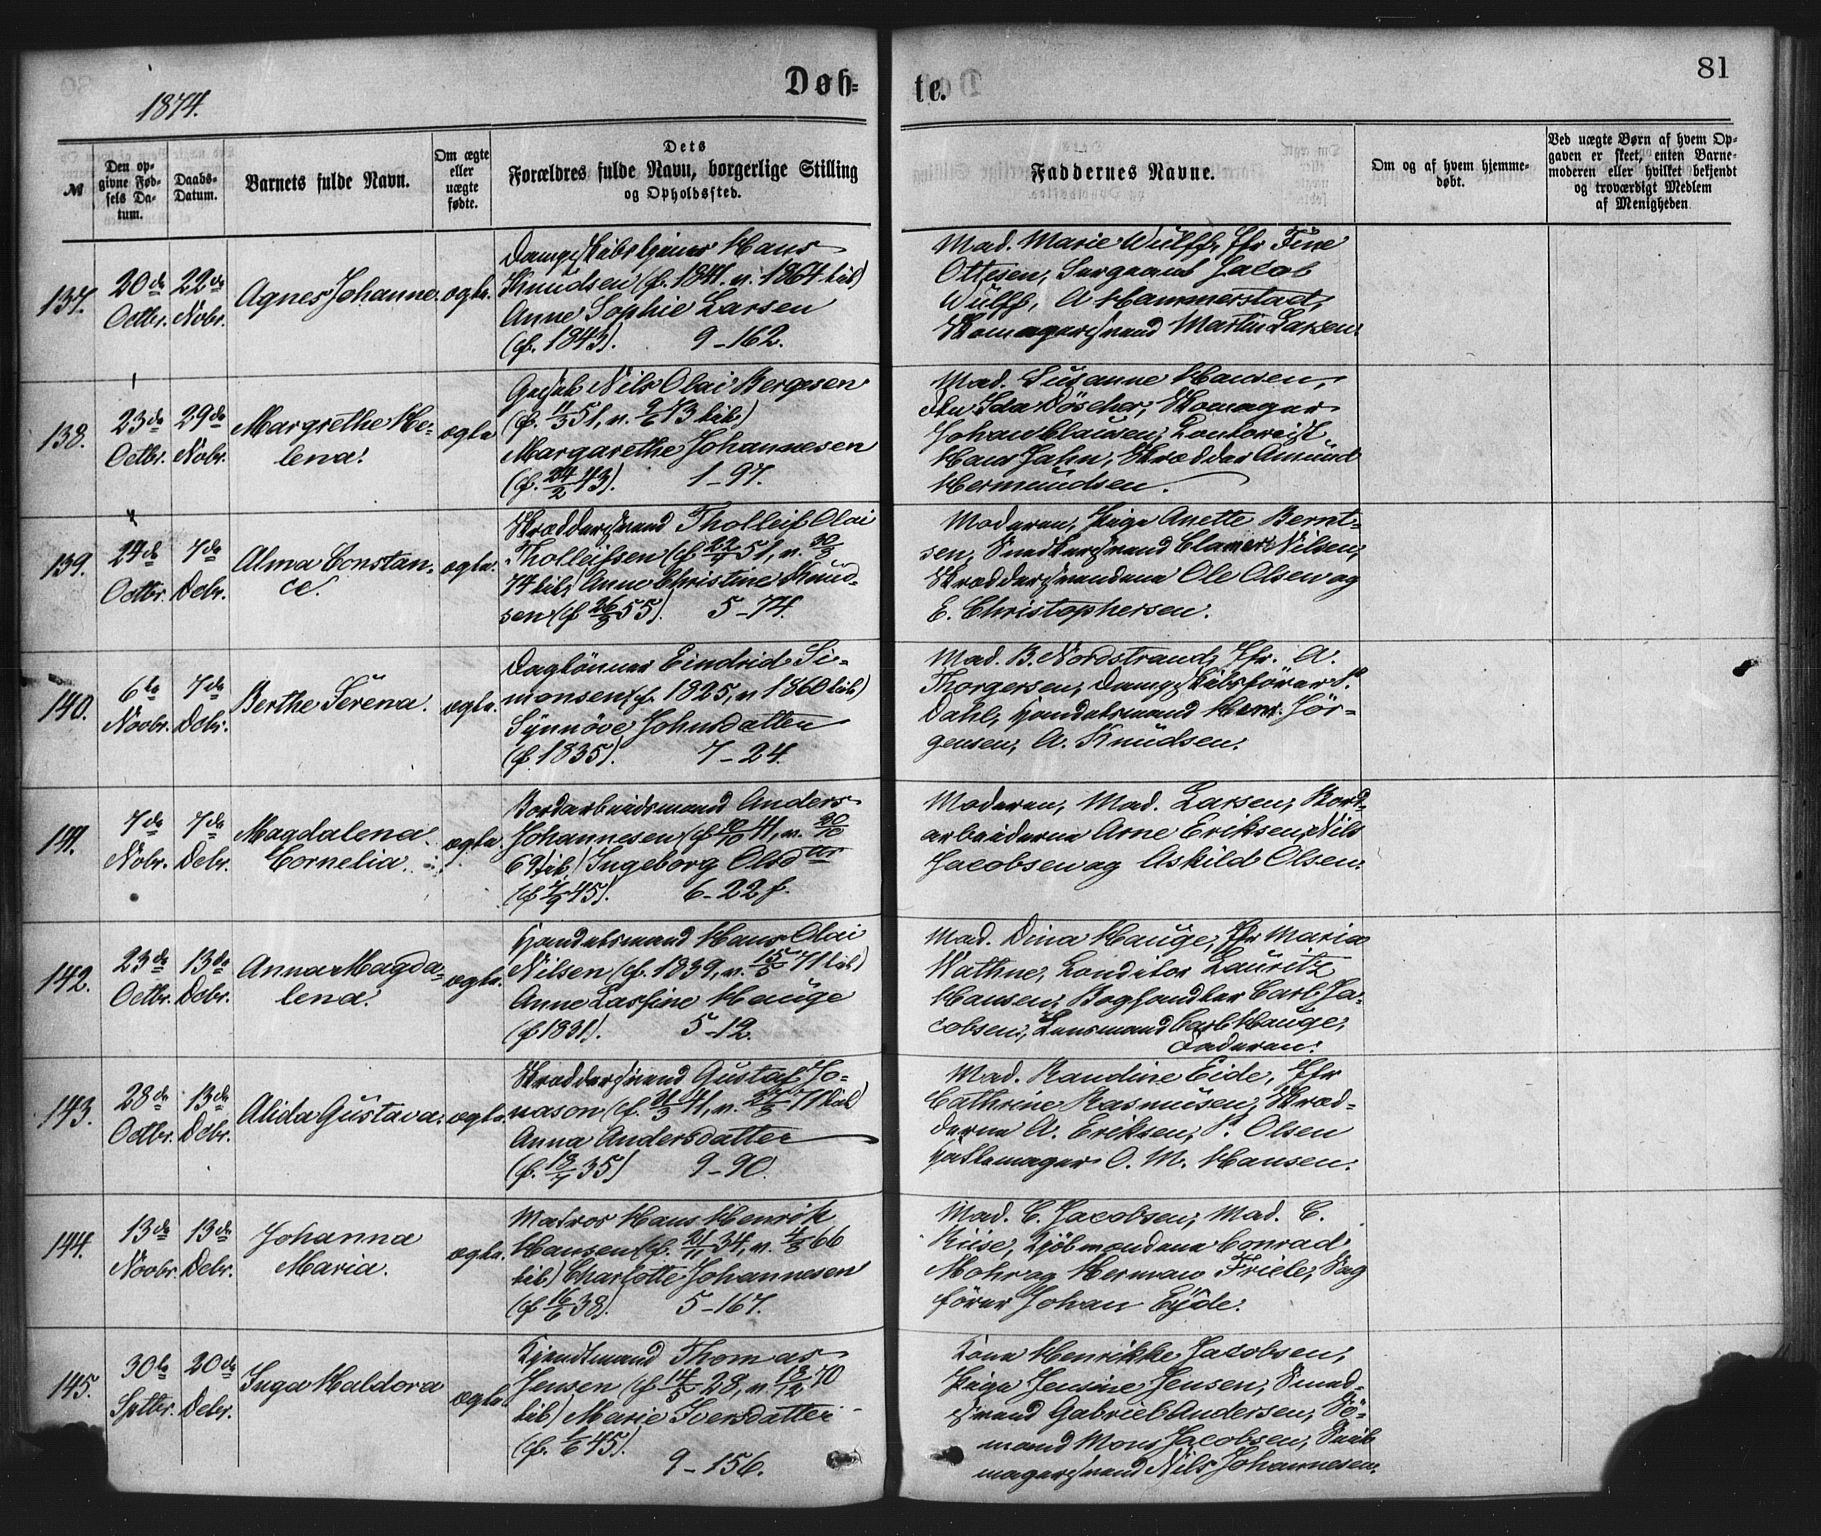 1874.
Døb-
te.
81
№
Den op-
givne Fød-
sels Da-
tum.
Daabs-
Datum.
Barnets fulde Navn.
Om ægte
eller
uægte
fødte.
Dets
Forældres fulde Navn, borgerlige Stilling
og Opholdssted.
Faddernes Navne.
Om og af hvem hjemme-
døbt.
Ved uægte Børn af hvem Op-
gaven er skeet, enten Barne-
moderen eller hvilket bekjendt
og troværdigt Medlem
af Menigheden.
137.
20de
Octbr.
22de
Nobr.
Agnes Johanne.
ægte.
Hans
Knudsen (f. 1841. v. 1864 lib)
Anne Sophie Larsen
(f. 1843). 9-162.
Mad. Marie Wulff, Jfr Tine
Ottesen, Sergeant Jacob
Wulff, A Hammerstad,
Skomagersvend Martin Larsen.
138.
23de
Octbr.
29de
Nobr.
Margrethe He-
lena.
ægte
Nils Olai Bergesen
(f. 11/3 51, v. 9/6 73 lib)
Margarethe Johannesen
(f. 24/2 43). 1-97.
Mad. Susanne Hansen,
Ida Döscher, Skomager
Johan Clausen, Contorist
Hans Jahn, Skrædder Amund
Hermundsen.
139.
24de
Octbr.
7de
Debr.
Alma Constan-
ce.
ægte.
Skræddersvend Tholleif Olai
Tholleifsen (f. 51, v. 30/3
74 lib) Anne Christine Knud-
sen (f 55). 5-74.
Moderen, Pige Anette Bernt-
sen, Snedkersvend Nilsen,
Skræddersvendene Ole Olsen og
E. Christophersen.
140.
6te
Novbr.
7de
Debr.
Berthe Serena.
ægte.
Daglönner Eindrid Si-
monsen (f. 1825, v 1860 lib)
Synnöve Johnsdatter
(f. 1835). 7-24.
Mad. B. Nordstrand, Jfr. A.
Thorgersen, Dampskibsförer P.
Dahl, Handelsmand Henr. Jör-
gensen, A. Knudsen.
141.
7de
Nobr.
7de
Debr.
Magdalena
Cornelia.
ægte.
Anders
Johannesen (f 41, v.
69 lib) Ingeborg Olsdtr
(f 45). 6-22 f.
Moderen, Mad. Larsen,
arbeiderne Arne Eriksen, Nils
Jacobsen og Askild Olsen.
142.
23de
Octbr.
13de
Debr.
Anna Magda-
lena.
ægte.
Handelsmand Hans Olai
Nilsen (f. 1839, v. 15/5 71 lib)
Anne Hauge
5-12.
Mad. Dina Hauge, Jfr Maria
Wathne, Conditor Lauritz
Hansen, Boghandler Carl Ja-
cobsen, Lensmand Hauge,
Faderen.
143.
28de
Octbr.
13de
Debr.
Alida Gustava.
ægte.
Skræddersvend Gustaf Jo-
nason (f. 41, v. 71 lib)
Anna Andersdatter
(f. 35) 9-90.
Mad. Randine Eide, Jfr
Cathrine Rasmusen, Skræd-
derne A. Eriksen, P. Olsen
Hattemager O. M. Hansen.
144.
13de
Novbr.
13de
Debr.
Johanna
Maria.
ægte.
Matros Hans Henrik
Hansen (f. 21/11 34, v. 66
lib) Charlotte Johannesen
(f 16/6 38). 5-167.
Mad. C. Jacobsen, Mad. C.
Riise, Kjöbmændene Conrad
Mohr og Herman Friele, Sag
förer Johan Eyde.
145.
30te
Sptbr.
20de
Debr.
Inga Haldora
ægte.
Thomas
Jensen (f 28, v. 70
lib) Marie Iversdatter
(f. 1/6 45).
9-156.
Kone Henrikke Jacobsen,
Pige Jensine Jensen, Smed-
svend Gabriel Andersen, Sö-
mand Mons Jacobsen,
magersvend Nils Johannesen.